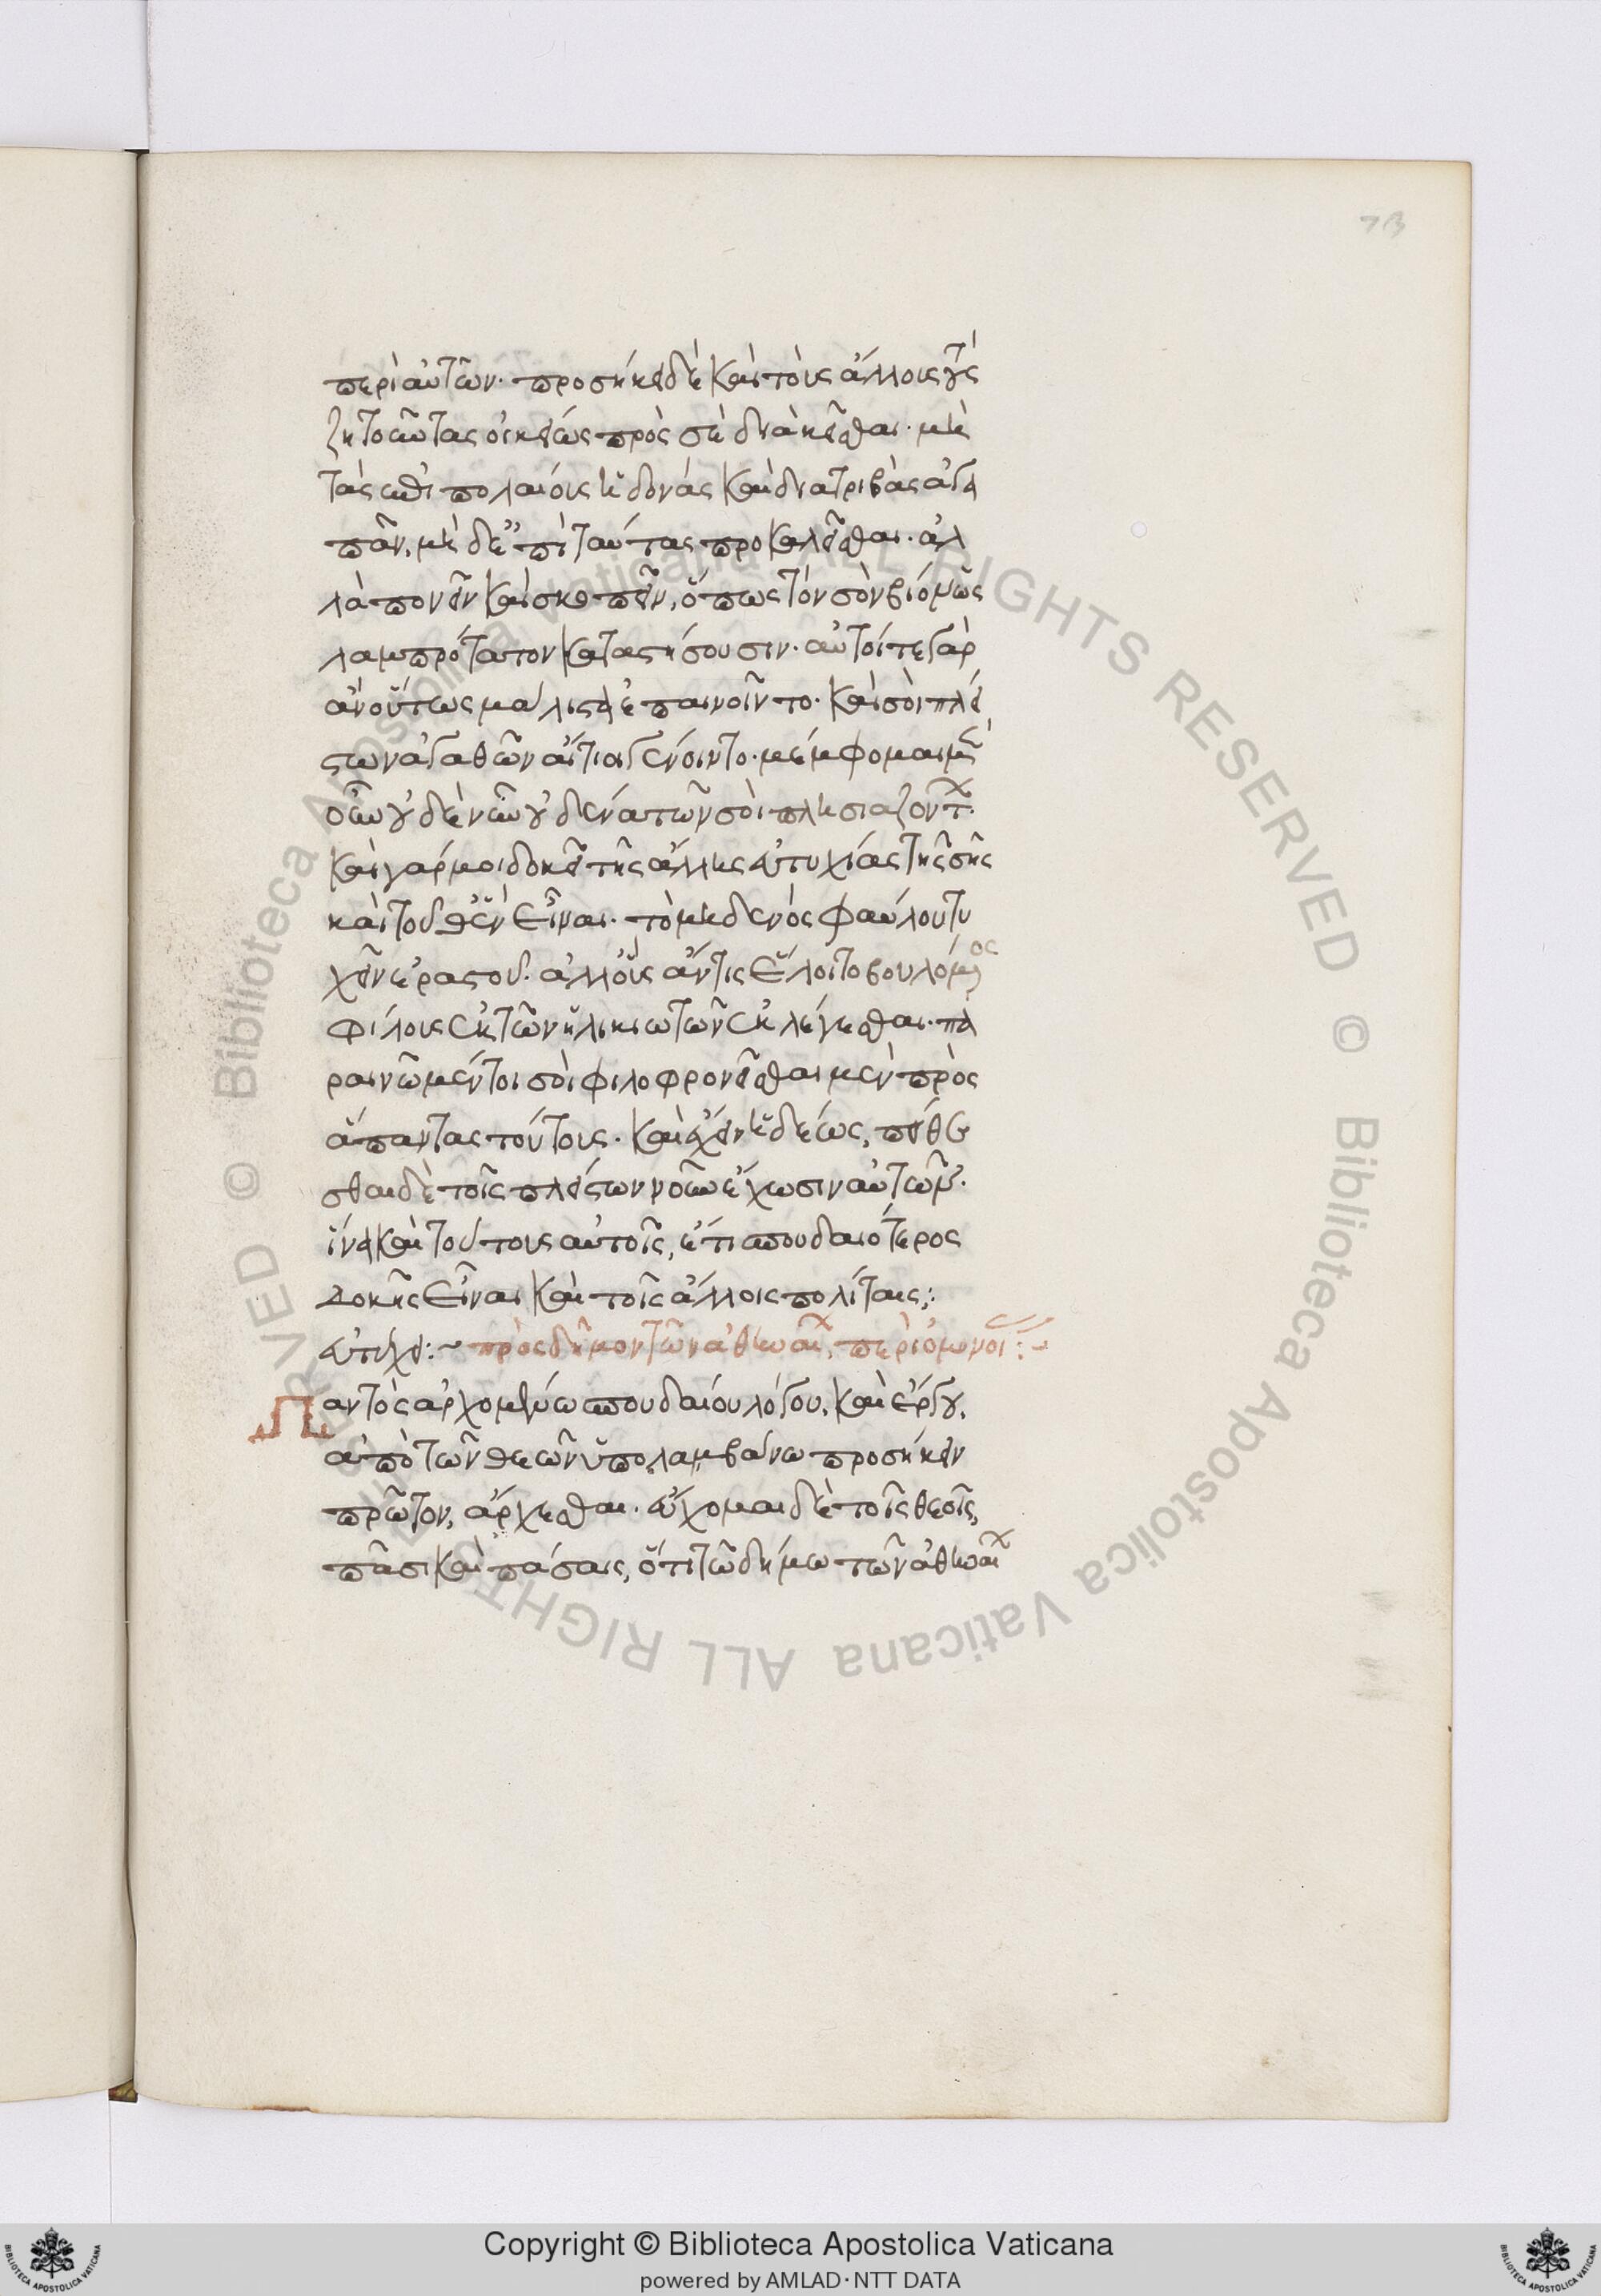 περὶ αὐτῶν. προσήκει δὲ καὶ τοὺς ἄλλους τοὺς
ζητοῦντας οἰκείως πρὸς σὲ διακεῖσθαι. μὴ
τὰς ἐπιπολαίους ἡδονὰς καὶ διατριβὰς ἀγα
πᾶν, μὴ δὲ ἐπὶ ταύτας προκαλεῖσθαι. ἀλ
λὰ πονεῖν καὶ σκοπεῖν, ὅπως τὸν σὸν βίον ὡς
λαμπρότατον καταστήσουσιν. αὐτοί τε γὰρ
ἂν οὕτως μάλιστα ἐπαινοῖντο. καὶ σοὶ πλεί
στων ἀγαθῶν αἴτιοι γένοιντο. μέμφομαι μὲν
οὖν οὐδὲ νῦν οὐδένα τῶν σοὶ πλησιαζόντων.
καὶ γάρ μοι δοκεῖ τῆς ἄλλης εὐτυχίας τῆς σῆς
καὶ τοῦθ' ἓν εἶναι. τὸ μηδενὸς φαύλου τυ
χεῖν ἐραστοῦ. ἀλλ' οὓς ἄν τις ἕλοιτο βουλόμενος
φίλους ἐκ τῶν ἡλικιωτῶν ἐκλέγεσθαι. πα
ραινῶ μέντοι σοὶ φιλοφρονεῖσθαι μὲν πρὸς
ἅπαντας τούτους. καὶ ἔχειν ἡδέως, πείθε
σθαι δὲ τοῖς πλεῖστον νοῦν ἔχουσιν αὐτῶν.
ἵνα καὶ τούτοις αὐτοῖς, ἔτι σπουδαιότερος
δοκῇς εἶναι καὶ τοῖς ἄλλοις πολίταις:
εὐτύχει:~ πρὸς δῆμον τῶν ἀθηναίων, περὶ ὁμονοίας:~
Παντὸς ἀρχομένω σπουδαίου λόγου, καὶ ἔργου,
ἀπὸ τῶν θεῶν ὑπολαμβάνω προσήκειν
πρῶτον, ἄρχεσθαι. εὔχομαι δὲ τοῖς θεοῖς,
πᾶσι καὶ πάσαις, ὅτι τῶ δήμω τῶν ἀθηναίων